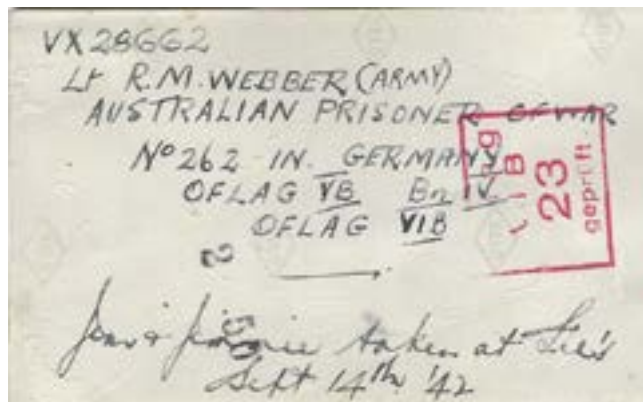 VX28662
Lt R.M. WEBBER (ARMY)
AUSTRALIAN PRISONER OF WAR
No 262 IN GERMANY
OFLAG VB Bn IV
OFLAG VIB
g
B
23
geprüft
Jean & Jimmie taken at
Sept 14th '42